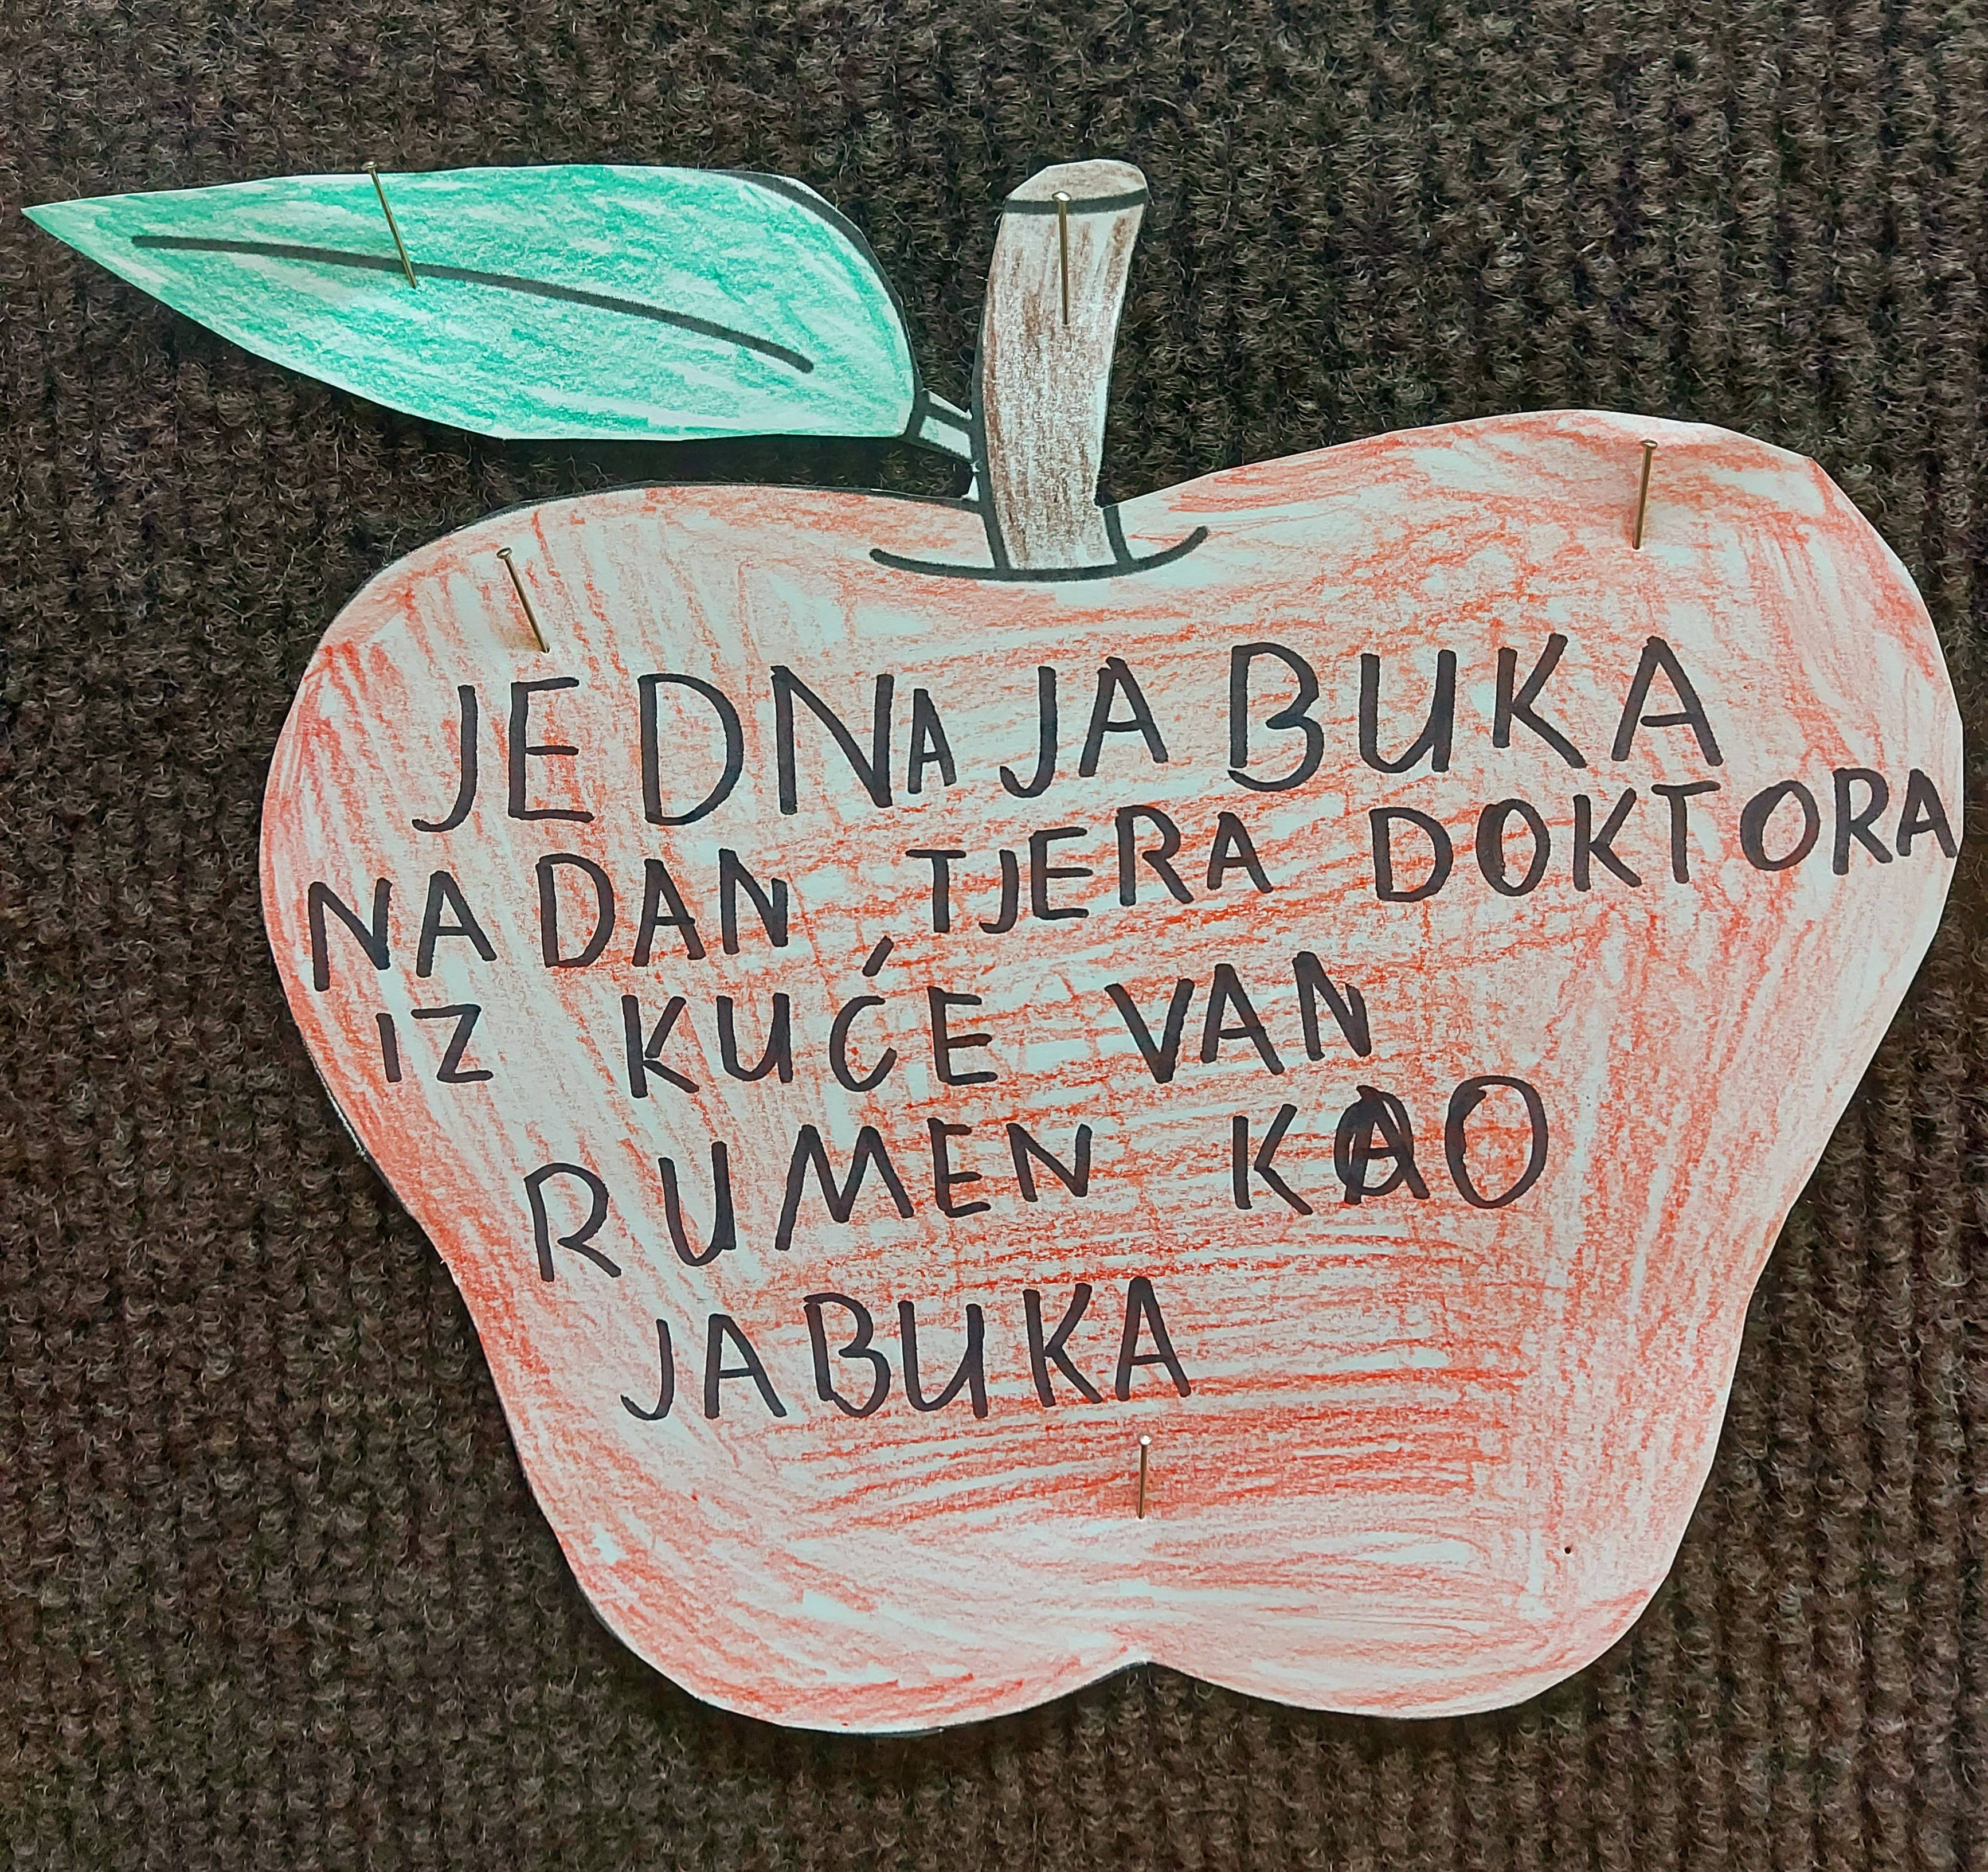 JEDNA JABUKA
NA DAN TJERA DOKTORA
IZ KUĆE VAN
RUMEN KAO
JABUKA